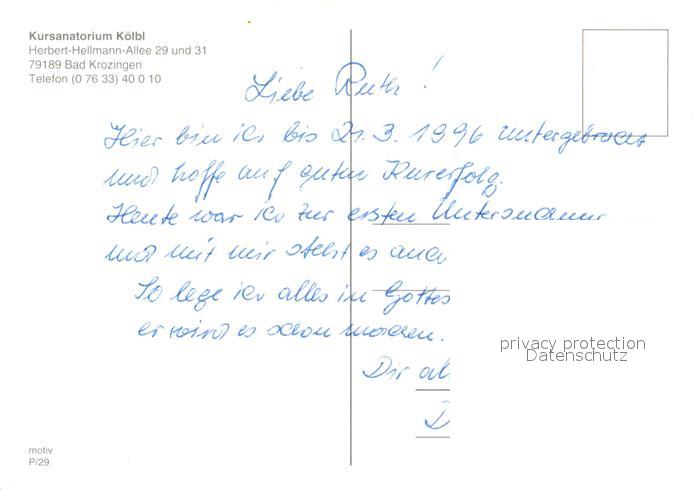 Kursanatorium Kölbl
Herbert-Hellmann-Allee 29 und 31
79189 Bad Krozingen
Telefon (0 76 33) 40 0 10
Liebe Ruth!
Hier bin ich bis 21.3.1996 untergebracht
und hoffe auf guten Kurerfolg.
Heute war ich zur ersten
und mit mir steht es auch
So lege ich alles in Gottes
er wird es schon machen.
Dir
D
privacy protection
Datenschutz
motiv
P/29